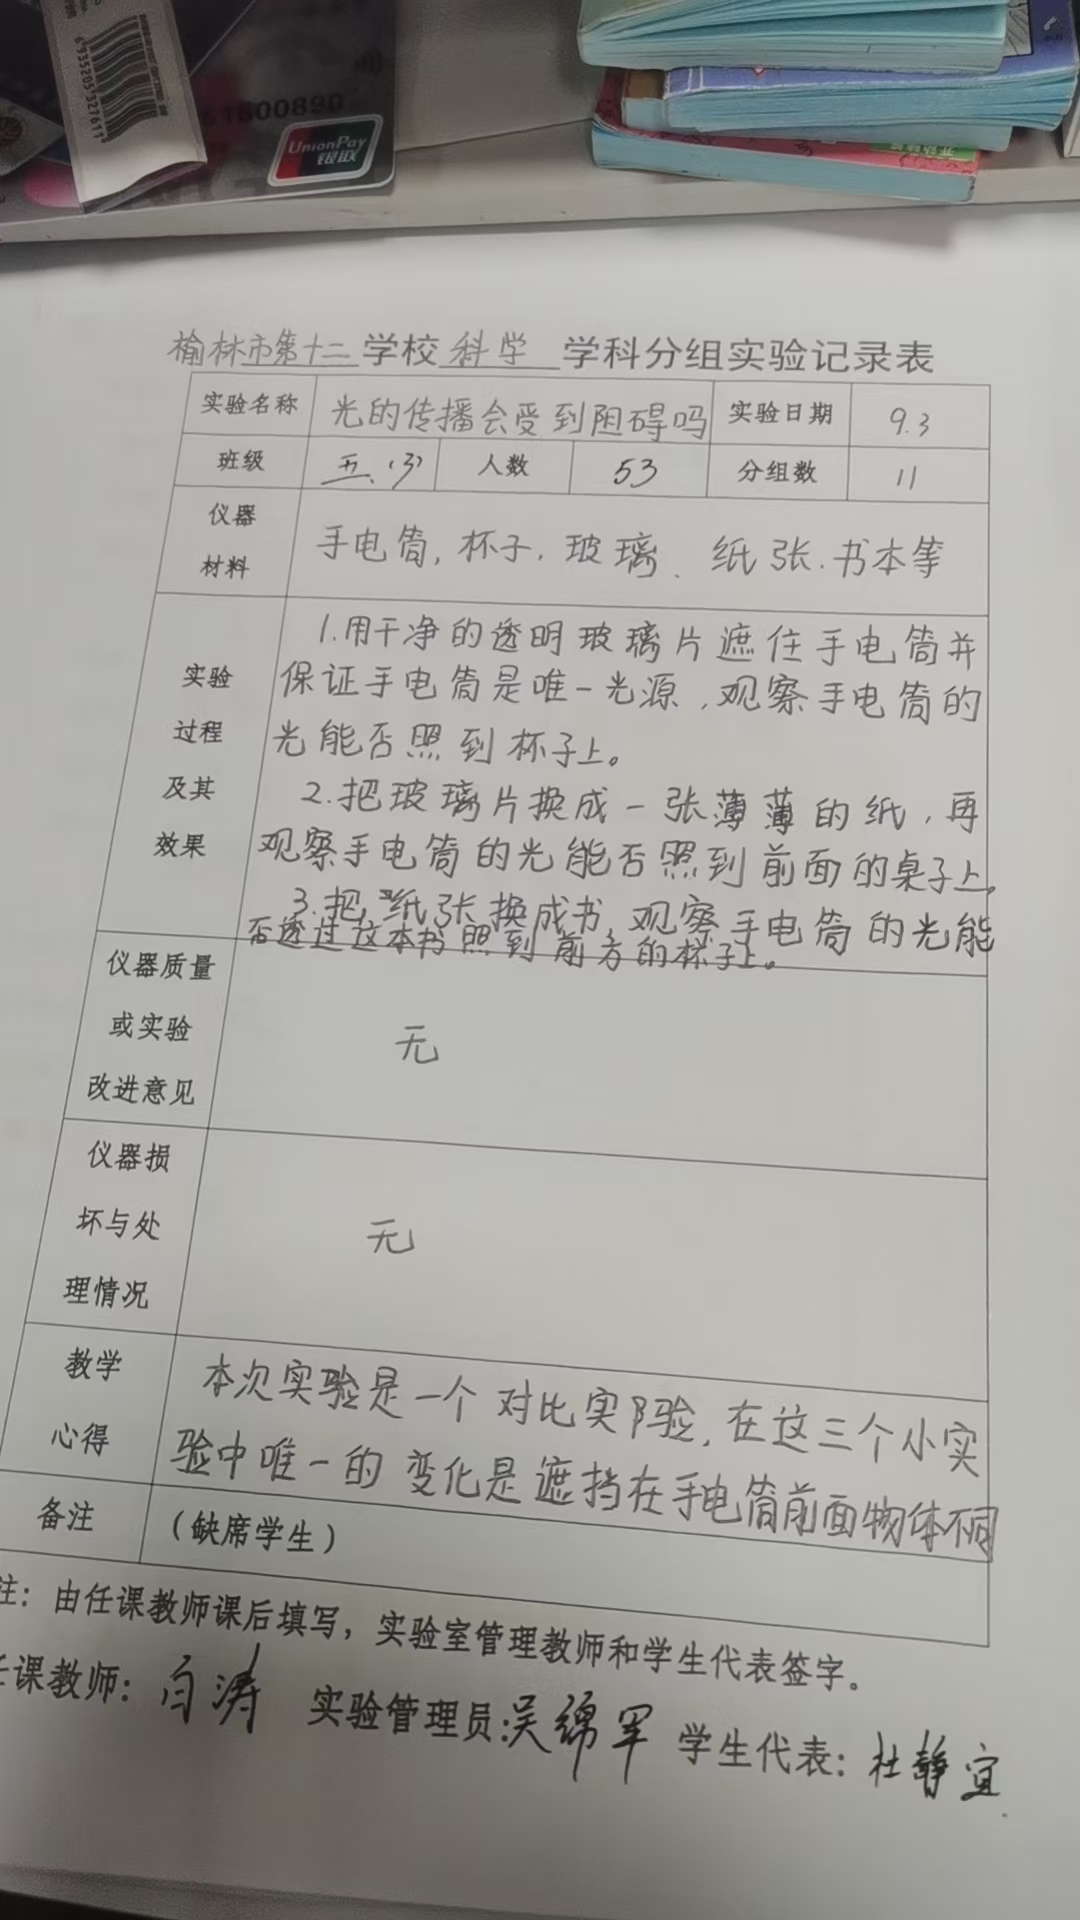 6935205327611
61600890
UnionPay
银联
榆林市第十二学校 科学 学科分组实验记录表
实验名称 光的传播会受到阻碍吗 实验日期 9.3
班级 五.(3) 人数 53 分组数 11
仪器材料 手电筒,杯子.玻璃、纸张.书本等
实验过程及其效果
1.用干净的透明玻璃片遮住手电筒并
保证手电筒是唯一光源,观察手电筒的
光能否照到杯子上。
2.把玻璃片换成一张薄薄的纸,再
观察手电筒的光能否照到前面的桌子上。
3.把纸张换成书,观察手电筒的光能
否透过这本书照到前方的杯子上。
仪器质量或实验改进意见 无
仪器损坏与处理情况 无
教学心得
本次实验是一个对比实验,在这三个小实
验中唯一的变化是遮挡在手电筒前面物体不同
备注 (缺席学生)
注:由任课教师课后填写,实验室管理教师和学生代表签字。
任课教师:白涛 实验管理员:吴绵军 学生代表:杜静宜